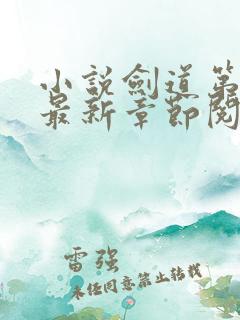 小说劍道第
最新章節閱
雷强
未经同意禁止转载